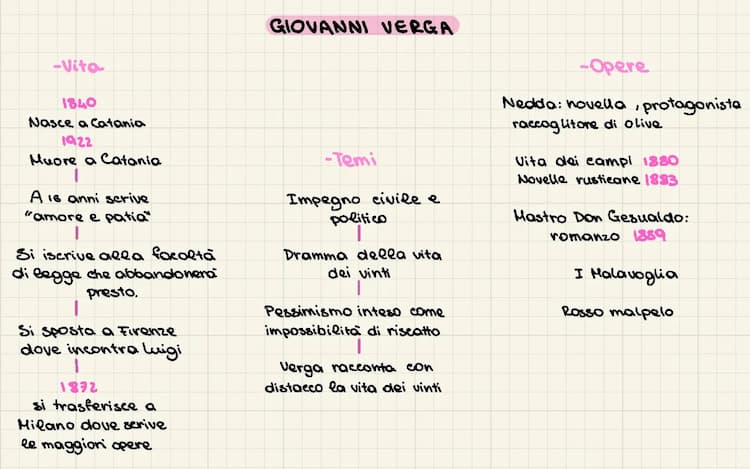 GIOVANNI VERGA
-Vita
1840
Nasce a Catania
1922
Muore a Catania
A 16 anni scrive
"amore e patia"
Si iscrive alla facoltà
di legge che abbandonerà
presto.
Si sposta a Firenze
dove incontra Luigi
1872
si trasferisce a
Milano dove scrive
le maggiori opere
-Temi
Impegno civile e
politico
Dramma della vita
dei vinti
Pessimismo inteso come
impossibilità di riscatto
Verga racconta con
distacco la vita dei vinti
-Opere
Nedda: novella , protagonista
raccoglitore di olive
Vita dei campi 1880
Novelle rusticane 1883
Mastro Don Gesualdo:
romanzo 1889
I Malavoglia
Rosso malpelo